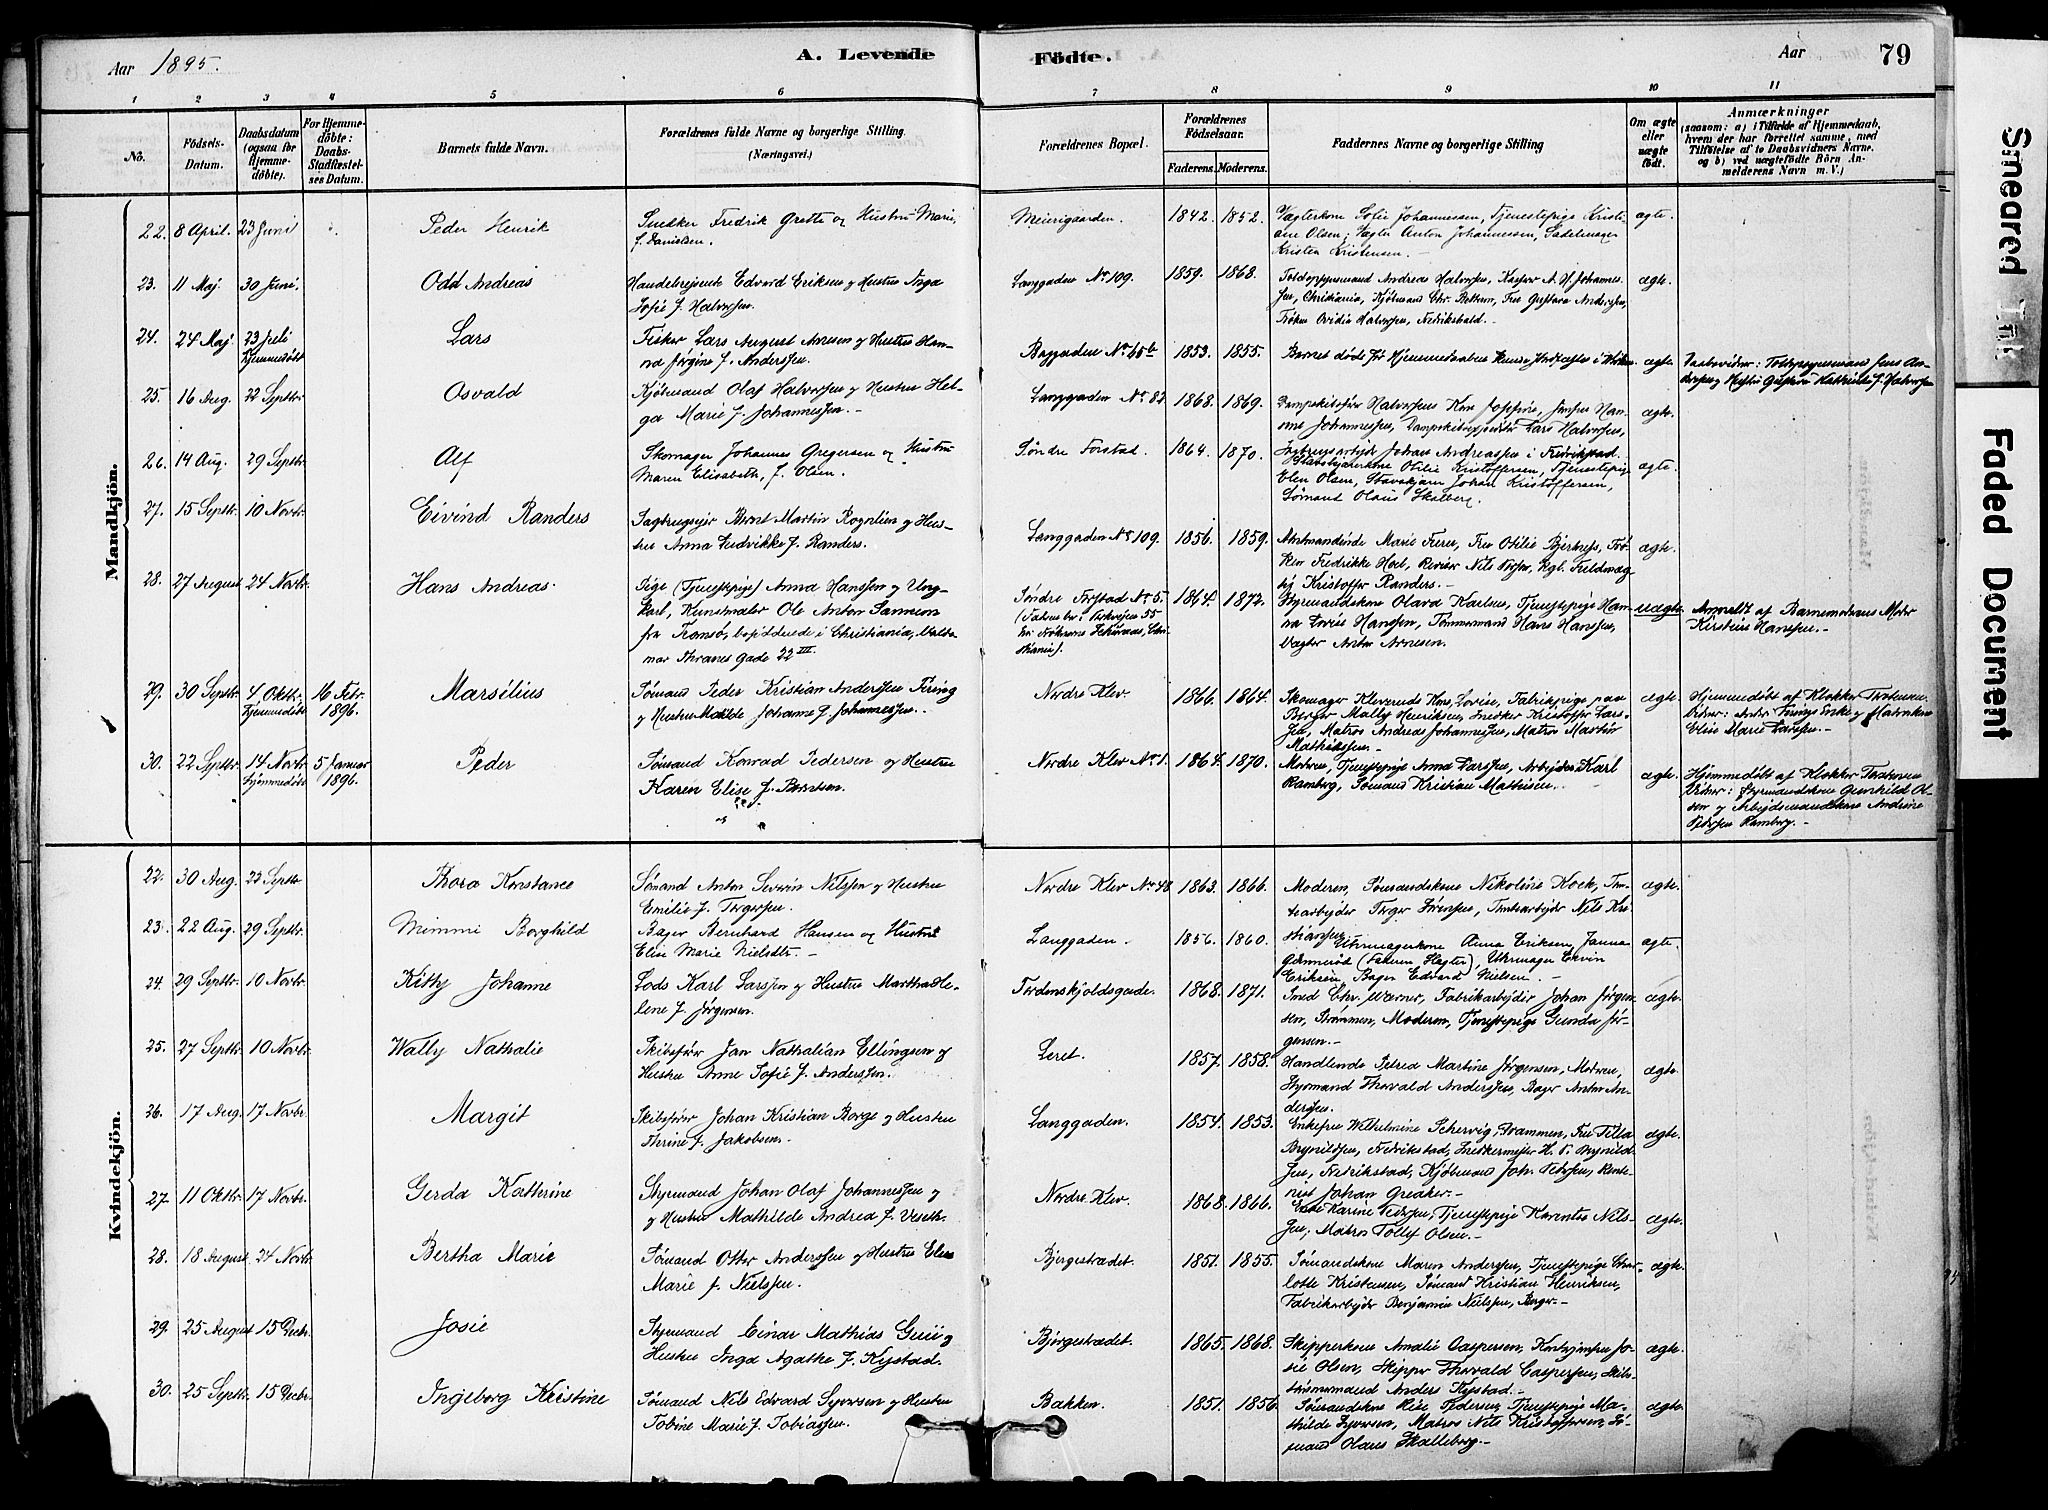 Aar 1895.
A. Levende
Födte.
Aar
79
1 2 3 4 5 6 7 8 9 10 11
No.
Födsels-
Datum.
Daabsdatum
(ogsaa for
Hjemme-
döbte).
For Hjemme-
döbte:
Daabs-
Stadfæstel-
ses Datum.
Barnets fulde Navn.
Forældrenes fulde Navne og borgerlige Stilling.
(Næringsvei.)
Forældrenes Bopæl.
Forældrenes
Födselsaar.
Faderens. Moderens.
Faddernes Navne og borgerlige Stilling
Om ægte
eller
uægte
födt.
Anmærkninger
(saasom: a) i Tilfælde af Hjemmedaab,
hvem der har forrettet samme, med
Tilföielse af to Daabsvidners Navne,
og b) ved uægtefödte Börn An-
melderens Navn m. V.)
Mandkjön.
22. 8 April. 23 Juni Peder Henrik
Snedker Fredrik Grette og Hustru Marie,
f. Danielsen.
Meierigaarden. 1842. 1852.
Vægterkone Sofie Johannessen, Tjenestepige Kristi-
ane Olsen; Vægter Anton Johannessen, Sadelmager
Kristen Kristensen.
ægte.
23. 11 Maj 30 Juni. Odd Andreas
Handelsrejsende Edvard Eriksen og Hustru Inga
Sofie f. Halvorsen.
Langgaden No 109. 1859. 1868.
Toldopsynsmand Andreas Halvorsen, Kasser A. H. Johannes-
sen, Christiania, Kjøbmand Chr. Bettum, Fru Gustava Andersen,
Frøken Ovidia Halvorsen, Fredrikshald.
ægte.
24. 24 Maj 23 Juli
Hjemmedøbt Lars
Fisker Lars August Arnesen og Hustru Han-
na Jørgine f. Anderssen.
Baggaden No 65b 1853. 1855.
Barnet døde før Hjemmedaabens
ægte.
Daabsvidner: Toldopsynsmand Jens An-
25. 16 Aug. 22 Septbr. Osvald
Kjøbmand Olaf Halvorsen og Hustru Hel-
ga Marie f. Johannessen.
Langgaden No 82 1868. 1869.
Dampskibsfører Halvorsens Kone Josefine, Jomfru Han-
na Johannessen, Dampskibsexpeditør Lars Halvorsen,
ægte.
26. 14 Aug. 29 Septbr. Alf
Skomager Johannes Gregersen og Hustru
Maren Elisabeth, f. Olsen.
Søndre Forstad. 1864. 1870.
Johan Andreassen i Fredrikstad.
Otilie Kristoffersen, Tjenestepige
Elen Olsen, Johan Kristoffersen,
Sømand Olaus Skalberg.
ægte.
27. 15 Septbr. 10 Novbr. Eivind Randers
Sagbrugsejer Bernt Martin Rognlien og Hus-
tru Anna Ludvikke f. Randers.
Langgaden No 109. 1856. 1859.
Amtmandinde Marie Furu, Fru Otilie Bjertnæs, Frø-
ken Fredrikke Hoel, Revisor Nils
Kristoffer Randers.
ægte.
28. 27 August 24 Novbr. Hans Andreas.
Pige (Tjenestepige) Anna Hanssen og Ung-
karl, Kunstmaler Ole Anton Sannum
fra Tromsø, boende i Christiania, Valde-
mar Thranes gade 22 III.
Søndre Forstad No 5. 1864. 1872.
Styrmandskone Olava Karlsen, Tjenestepige Han-
na Lovise Hanssen, Tømmermand Hans Hanssen,
Vægter Anton Arnesen.
uægte.
Anmeldt af Barnemoderens Moder
Kirstine Hanssen.
29. 30 Septbr. 4 Oktbr.
Hjemmedøbt 16 Febr.
1896. Marsilius
Sømand Peder Kristian Anderssen Firing
og Hustru Matilde Johanne f. Johannessen.
Nordre Klev. 1866. 1864.
Skomager Kleveruds Kone, Lovise, Fabrikpige paa
Berger Mally Henriksen, Snedker Kristoffer Lars-
sen, Matros Andreas Johannessen, Matros Martin
Mathisssen.
ægte.
Hjemmedøbt af Klokker Thorstensen
Elise Marie Larssen.
30. 22 Septbr. 14 Novbr.
Hjemmedøbt 5 Januar
1896. Peder
Sømand Konrad Pedersen og Hustru
Karen Elise f. Berntsen.
Nordre Klev No 1. 1864. 1870.
Moderen, Tjenestepige Anna Larssen, Arbejder Karl
Ramberg, Sømand Kristian Mathisen.
ægte.
Hjemmedøbt af Klokker Thorstensen
Vidner: Styrmandskone Gunhild Ol-
sen og Arbejdsmandskone Andrine
Pedersen Ramberg.
Kvindekjön.
22. 30 Aug. 22 Septbr. Thora Konstance
Sømand Anton Severin Nilssen og Hustru
Emilie f. Torgersen.
Nordre Klev No 48. 1863. 1866.
Moderen, Sømandskone Nikoline Kock, Tom-
tearbejder Torger Sørensen, Tomtearbejder Nils Kri-
stiansen.
ægte.
23. 22 Aug. 29 Septbr. Mimmi Borghild
Bager Bernhard Hansen og Hustru
Elin Marie Nielsdtr.
Langgaden. 1856. 1860.
Uhrmagerkone Anna Eriksen, Janna
Uhrmager
Eriksen, Bager Edvard Nielsen.
ægte.
24. 29 Septbr. 10 Novbr. Kithy Johanne
Lods Karl Larssen og Hustru Martha He-
lene f. Jørgensen.
Tordenskjoldsgade. 1868. 1871.
Smed Chr. Werner, Fabrikarbejder Johan Jørgen-
sen, Drammen, Moderen, Tjenestepige Gunda Jør-
gensen.
ægte.
25. 27 Septbr. 10 Novbr. Wally Nathalie
Skibsfører Jan Nathalian Ellingsen og
Hustru Anne Sofie f. Anderssen.
Leret. 1857. 1858.
Handlende Petrea Martine Jørgensen, Moderen,
Styrmand Thorvald Anderssen, Bager Anton An-
derssen.
ægte.
26. 17 Aug. 17 Novbr. Margit
Skibsfører Johan Kristian Borge og Hustru
Thrine f. Jakobsen.
Langgaden. 1854. 1853.
Enkefru Wilhelmine Schervig, Drammen, Fru Tilla
Brynildsen, Fredrikstad, Snedkermester H. P. Brynild-
sen, Fredrikstad, Kjøbmand Joh. Petersen, Rente-
nist Johan Greaker.
ægte.
27. 11 Oktbr. 17 Novbr. Gerda Kathrine
Styrmand Johan Olaf Johannessen og
Hustru Mathilde Andrea f. Veseth.
Nordre Klev. 1868. 1866.
Enke Karine Petersen, Tjenestepige Karentse Nils-
sen, Matros Tollef Olsen.
ægte.
28. 18 August 24 Novbr. Bertha Marie
Sømand Otter Anderssen og Hustru Elise
Marie f. Nielssen.
Bjergestrædet. 1851. 1855.
Sømandskone Maren Anderssen, Tjenestepige Char-
lotte Kristensen, Sømand Kristian Henriksen,
Fabrikarbejder Benjamin Nielssen, Berger.
ægte.
29. 25 August 15 Decbr. Josie
Styrmand Einar Mathias Guii og
Hustru Inga Agathe f. Kystad.
Bjørgestrædet. 1865. 1868.
Skipperkone Amalie Caspersen, Jo-
sie Olsen, Skipper Thorvald Caspersen, Skibs-
tømmermand Anders Kystad.
ægte.
30. 25 Septbr. 15 Decbr. Ingeborg Kristine
Sømand Nils Edvard Syversen og Hustru
Tobine Marie f. Tobiassen.
Bakken. 1851. 1856.
Sømandskone Elise Pedersen, Tjenestepige Ma-
thilde Syversen, Matros Nils Kristoffersen, Sø-
mand Olaus Skalleberg.
ægte.
Smeared Ink
Faded Document